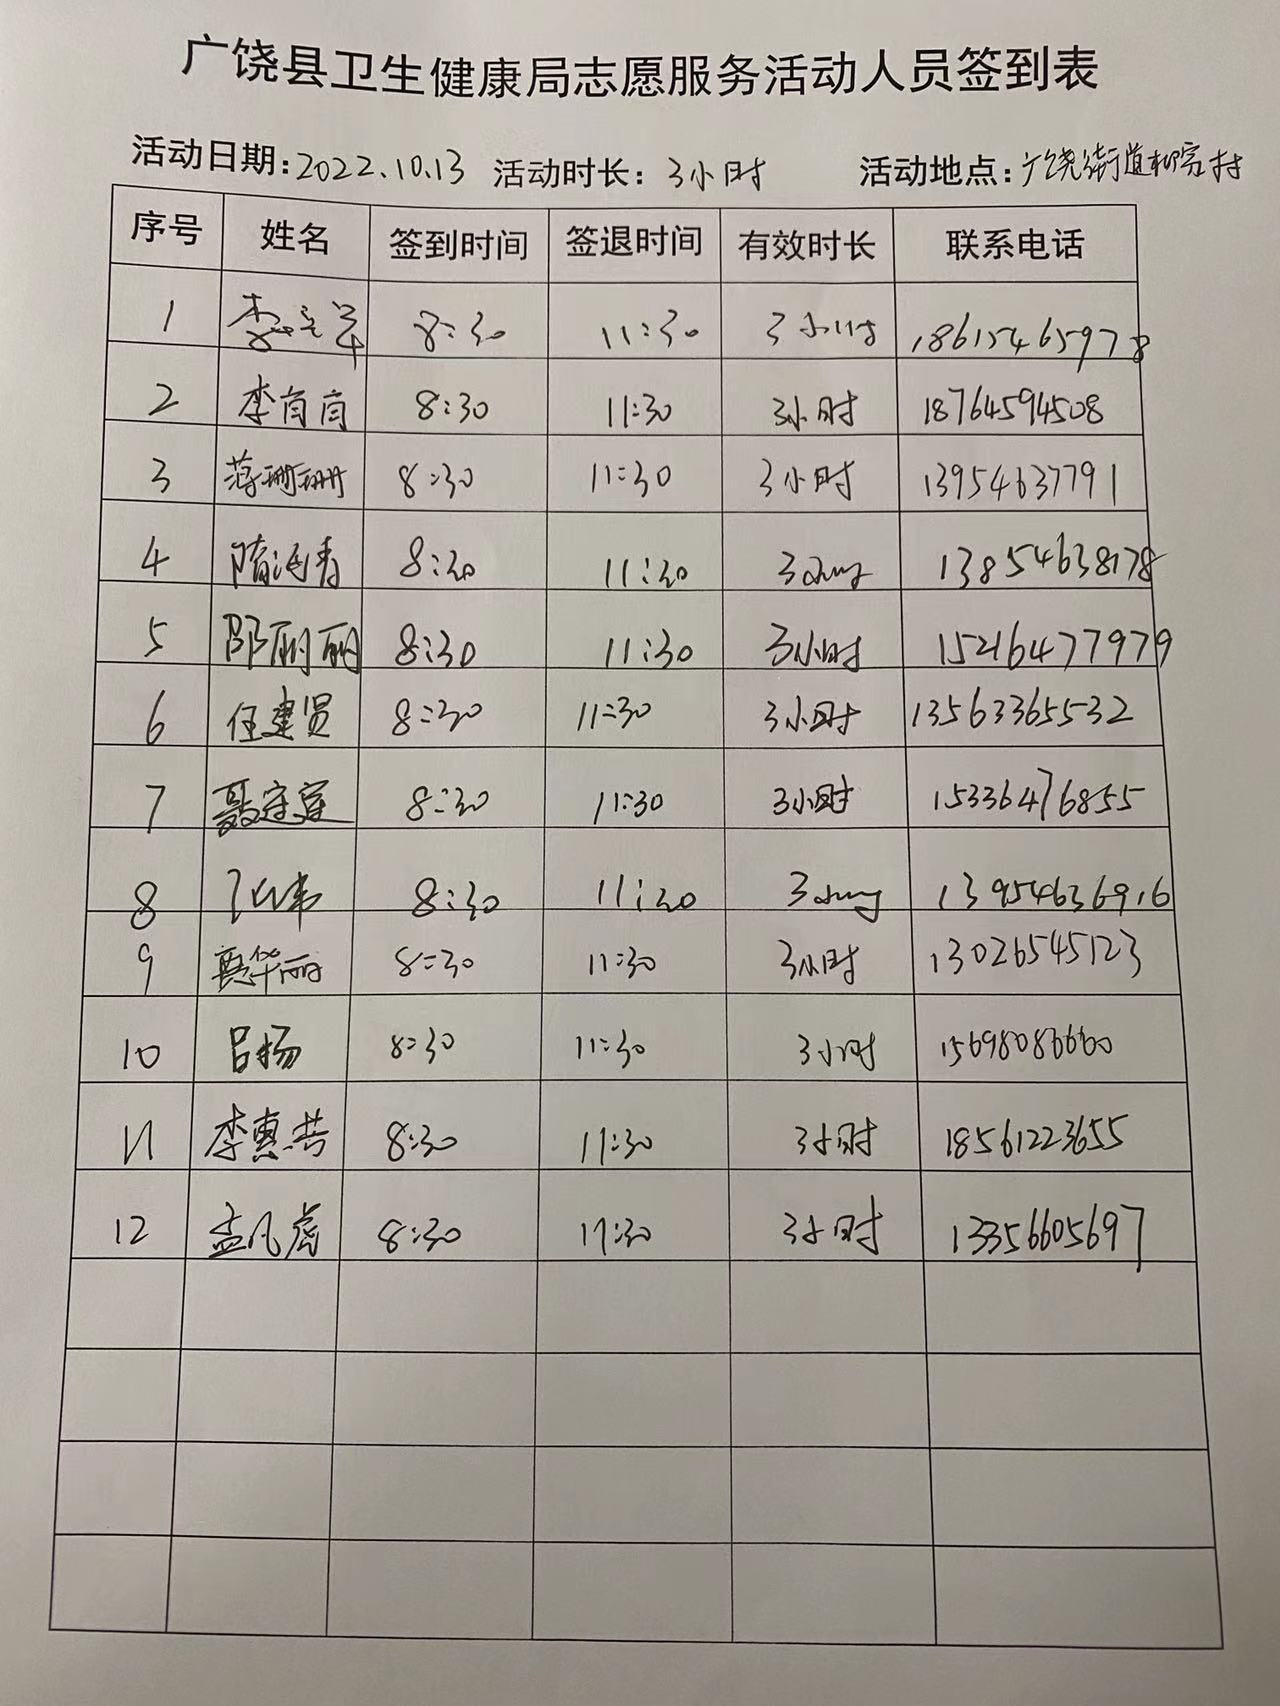 广饶县卫生健康局志愿服务活动人员签到表
活动日期:2022.10.13 活动时长:3小时 活动地点:广饶街道柳寨村
序号 姓名 签到时间 签退时间 有效时长 联系电话
1 李 8:30 11:30 3小时 18615465978
2 李肖肖 8:30 11:30 3小时 18764594508
3 蒋珊珊 8:30 11:30 3小时 13954637791
4 隋 8:30 11:30 3小时 13854638178
5 邵丽丽 8:30 11:30 3小时 15216477979
6 任建贤 8:30 11:30 3小时 13563365532
7 聂 8:30 11:30 3小时 15336476855
8 8:30 11:30 3小时 13954636916
9 华丽 8:30 11:30 3小时 13026545123
10 吕杨 8:30 11:30 3小时 15698086660
11 李惠芸 8:30 11:30 3小时 18561223655
12 孟凡虎 8:30 11:30 3小时 13356605697